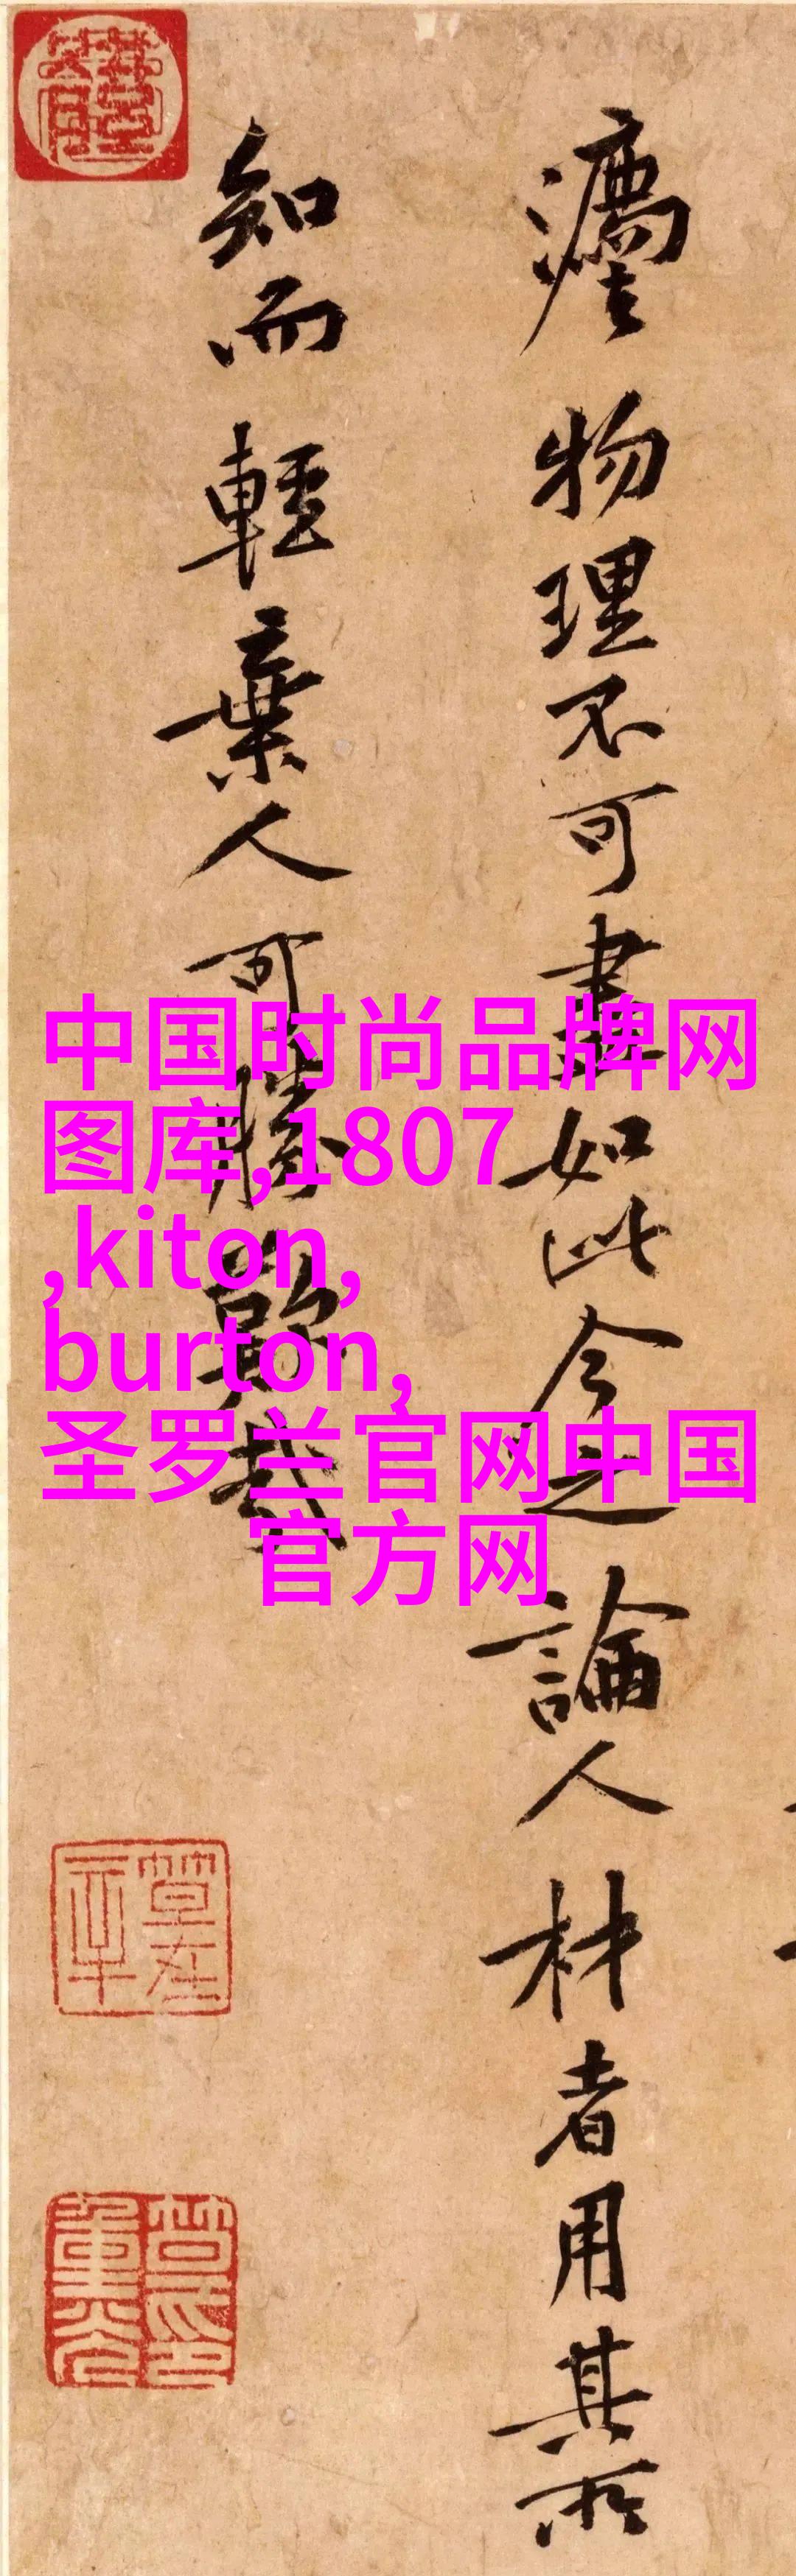 灋書
物理不可盡如此今之論人材者用其所
知而輕棄人可勝歎哉
中国时尚品牌网
图库,1807
,kiton,
burton,
圣罗兰官网中国
官方网